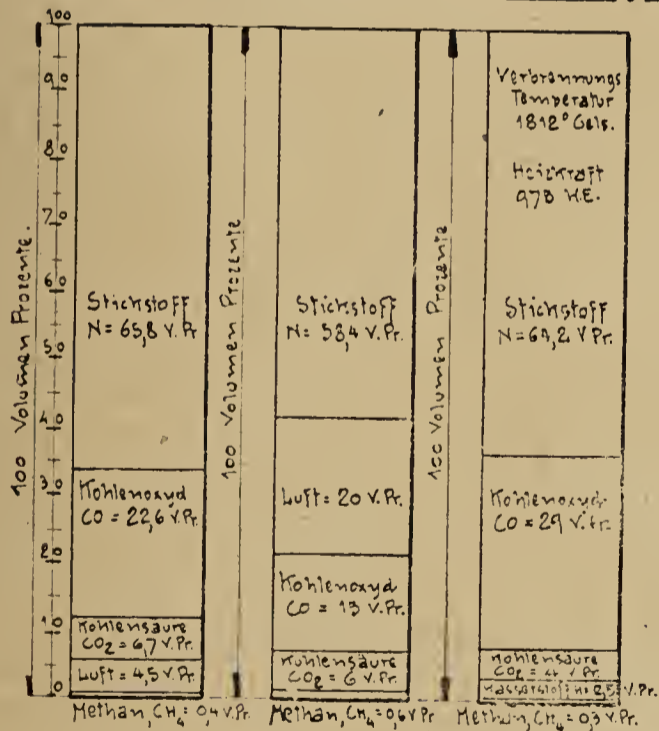 100
90
80
70
60
50
40
30
20
10
0
100 Volumen Prozente.
Stickstoff
N = 65,8 V. Pr.
Kohlenoxyd
CO = 22,6 V. Pr.
Kohlensäure
CO2 = 6,7 V. Pr.
Luft = 4,5 V. Pr.
Methan, CH4 = 0,4 V. Pr.
100 Volumen Prozente
Stickstoff
N = 58,4 V. Pr.
Luft = 20 V. Pr.
Kohlenoxyd
CO = 13 V. Pr.
Kohlensäure
CO2 = 6 V. Pr.
Methan, CH4 = 0,6 V. Pr
100 Volumen Prozente
Verbrannungs
Temperatur
1812° Cels.
Heizkraft
978 W.E.
Stickstoff
N = 64,2 V Pr.
Kohlenoxyd
CO = 29 V.
Kohlensäure
CO2 = 4 V Pr.
Wasserstoff H = 2,5 V. Pr.
Methan, CH4 = 0,3 V. Pr.